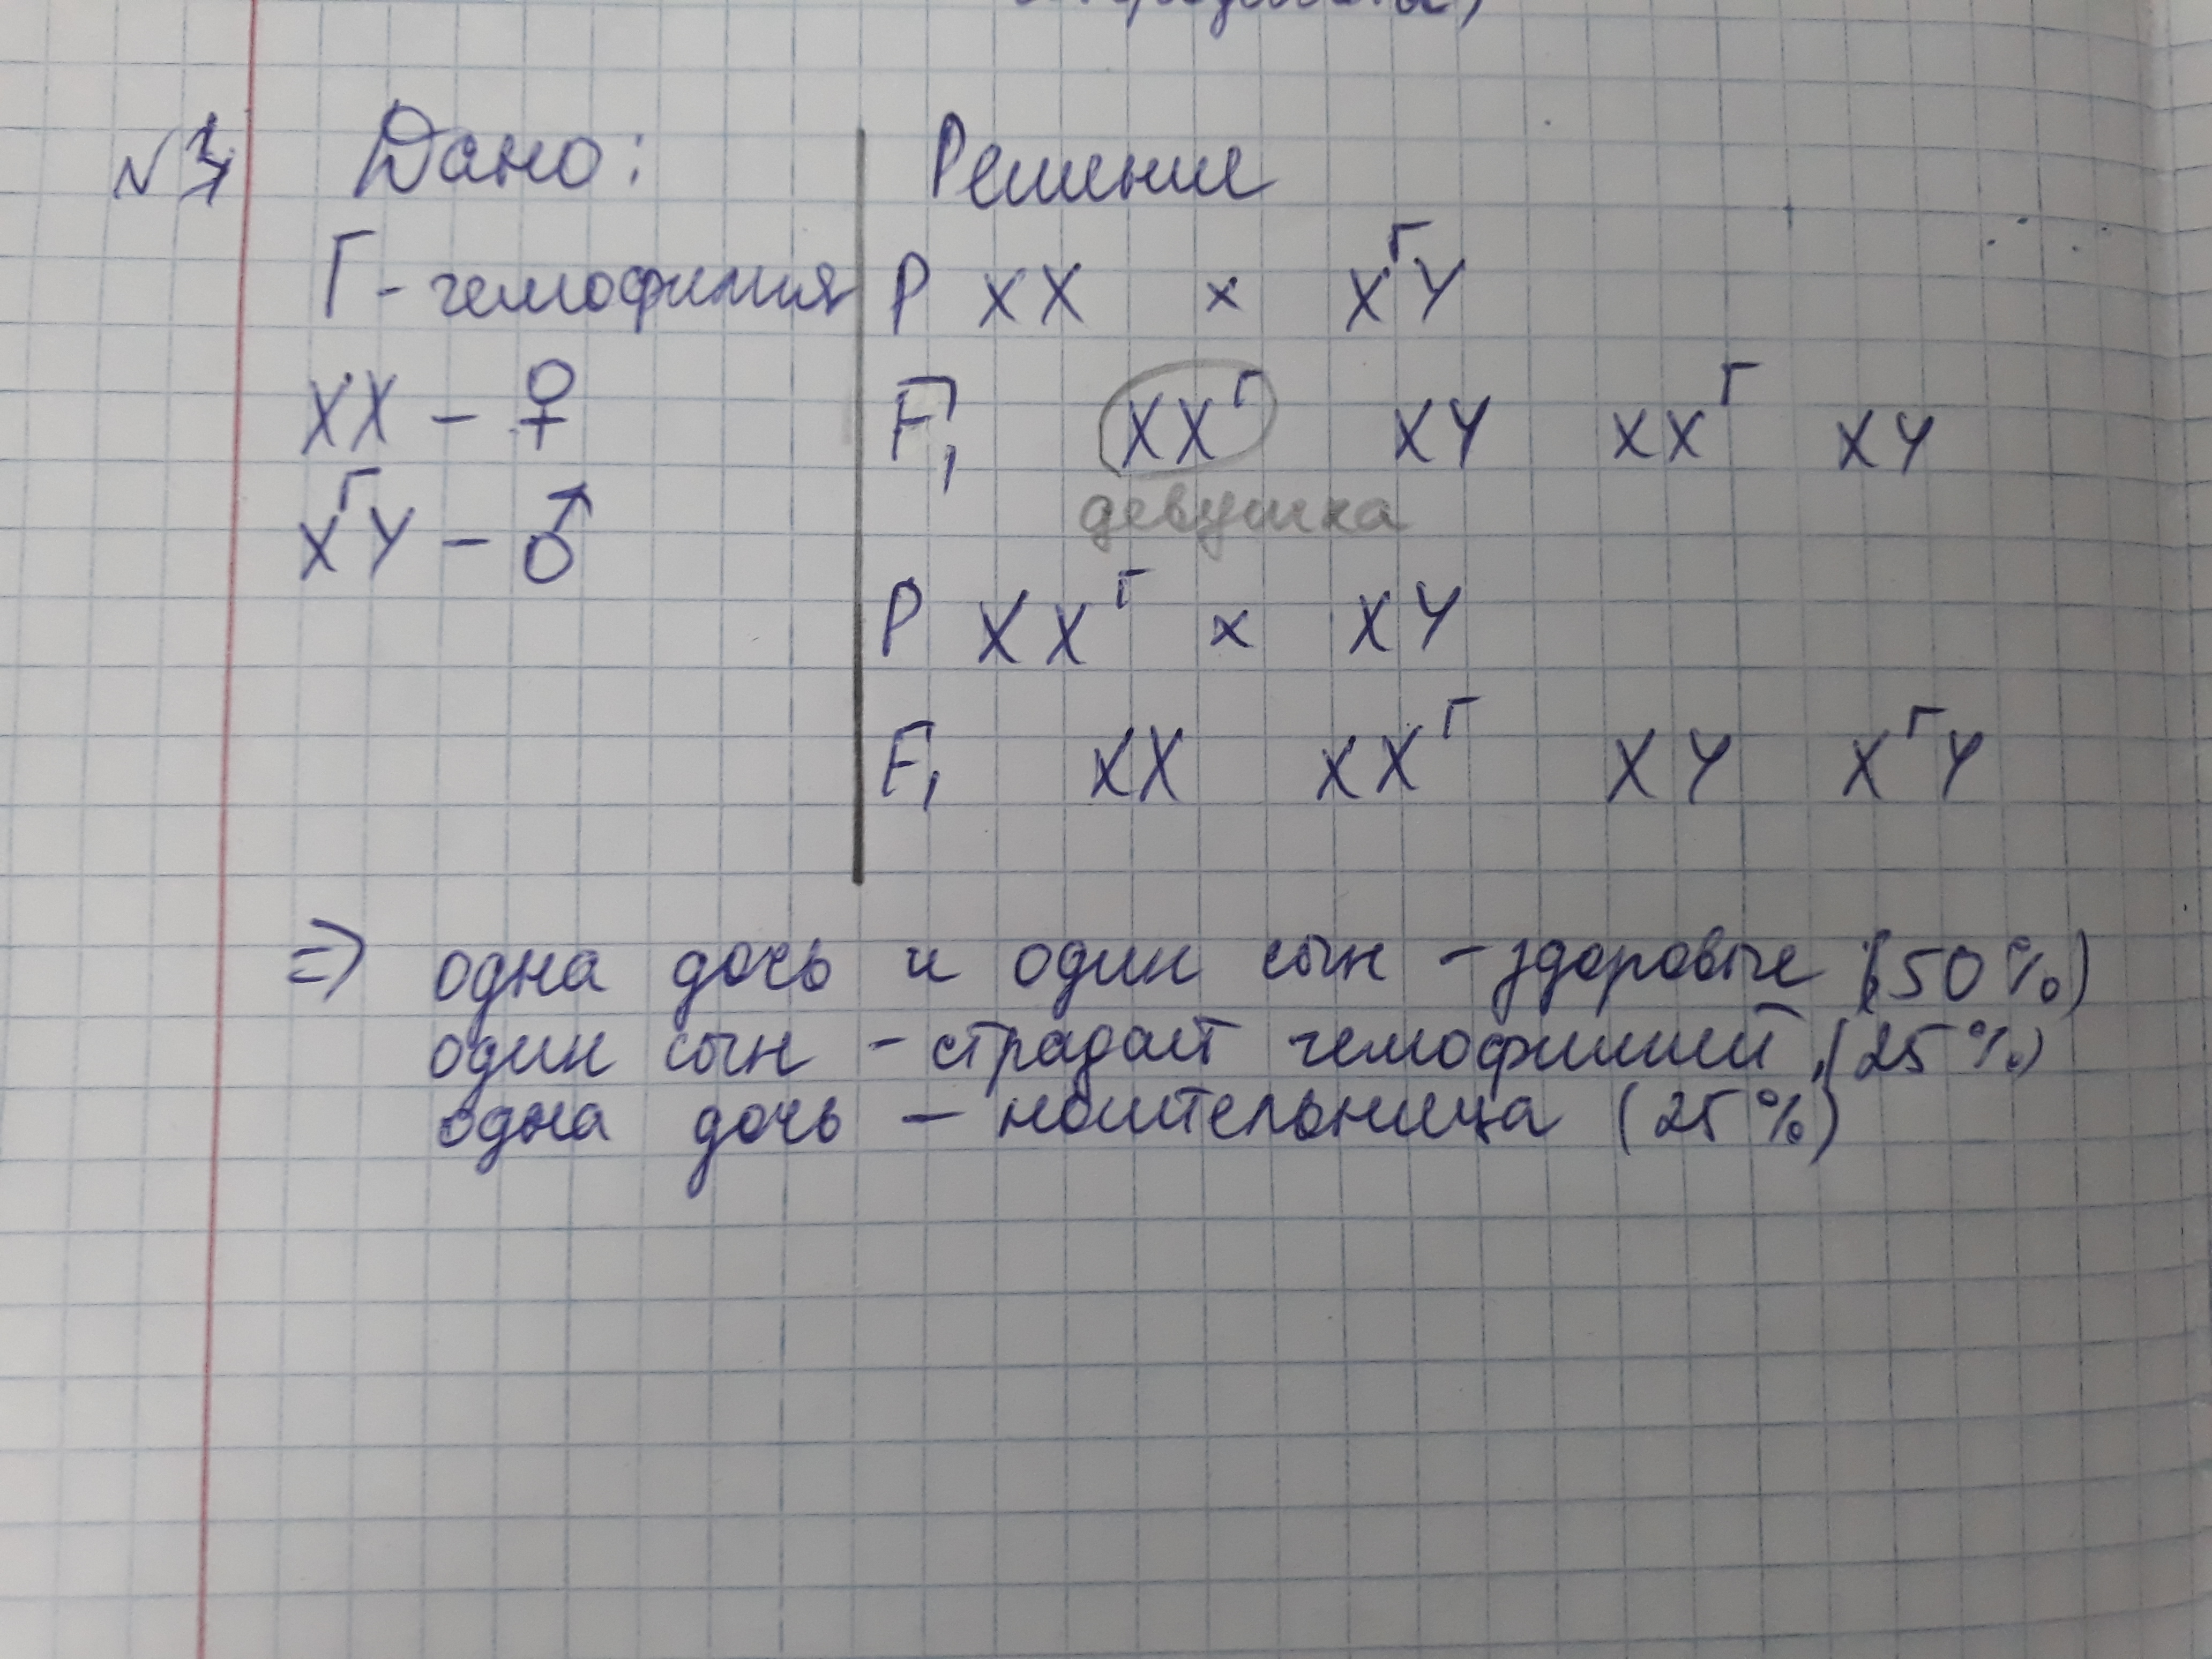 №3 Дано: Решение
Г - гемофилия P XX × XᴦY
XX - ♀ F₁ XXᴦ XY XXᴦ XY
девушка
XᴦY - ♂
P XXᴦ × XY
F₁ XX XXᴦ XY XᴦY
=> одна дочь и один сын - здоровые (50%)
один сын - страдает гемофилией (25%)
одна дочь - носительница (25%)